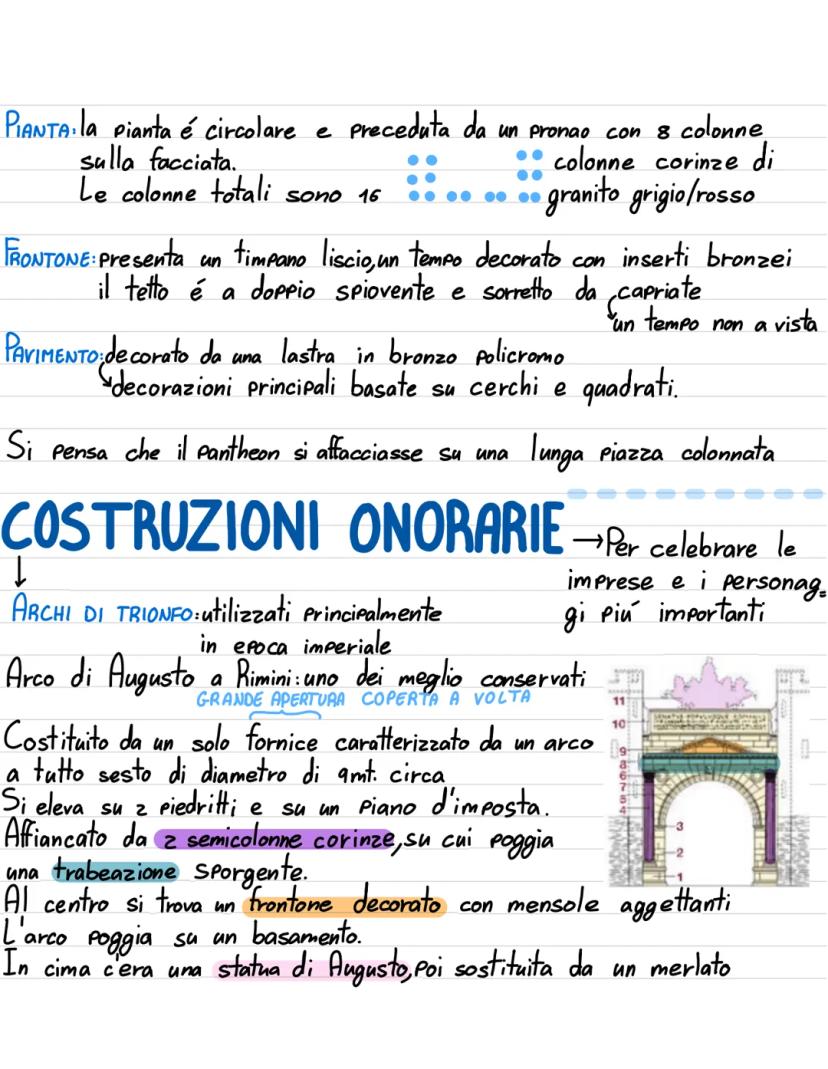 PIANTA: la pianta é circolare e preceduta da un pronao con 8 colonne
sulla facciata.
Le colonne totali sono 16
colonne corinze di
granito grigio/rosso
FRONTONE: presenta un timpano liscio, un tempo decorato con inserti bronzei
il tetto é a doppio spiovente e sorretto da capriate
un tempo non a vista
PAVIMENTO: decorato da una lastra in bronzo policromo
decorazioni principali basate su cerchi e quadrati.
Si pensa che il Pantheon si affacciasse su una lunga piazza colonnata
COSTRUZIONI ONORARIE → Per celebrare le
imprese e i personag=
gi piú importanti
↓
ARCHI DI TRIONFO: utilizzati principalmente
in epoca imperiale
Arco di Augusto a Rimini: uno dei meglio conservati
GRANDE APERTURA COPERTA A VOLTA
Costituito da un solo fornice caratterizzato da un arco
a tutto sesto di diametro di 9mt. circa
Si eleva su 2 piedritti e su un piano d'imposta.
Affiancato da 2 semicolonne corinze, su cui poggia
una trabeazione sporgente.
Al centro si trova un frontone decorato con mensole aggettanti
L'arco poggia su un basamento.
In cima c'era una statua di Augusto, poi sostituita da un merlato
11
10
9
8
7
6
5
4
3
2
1